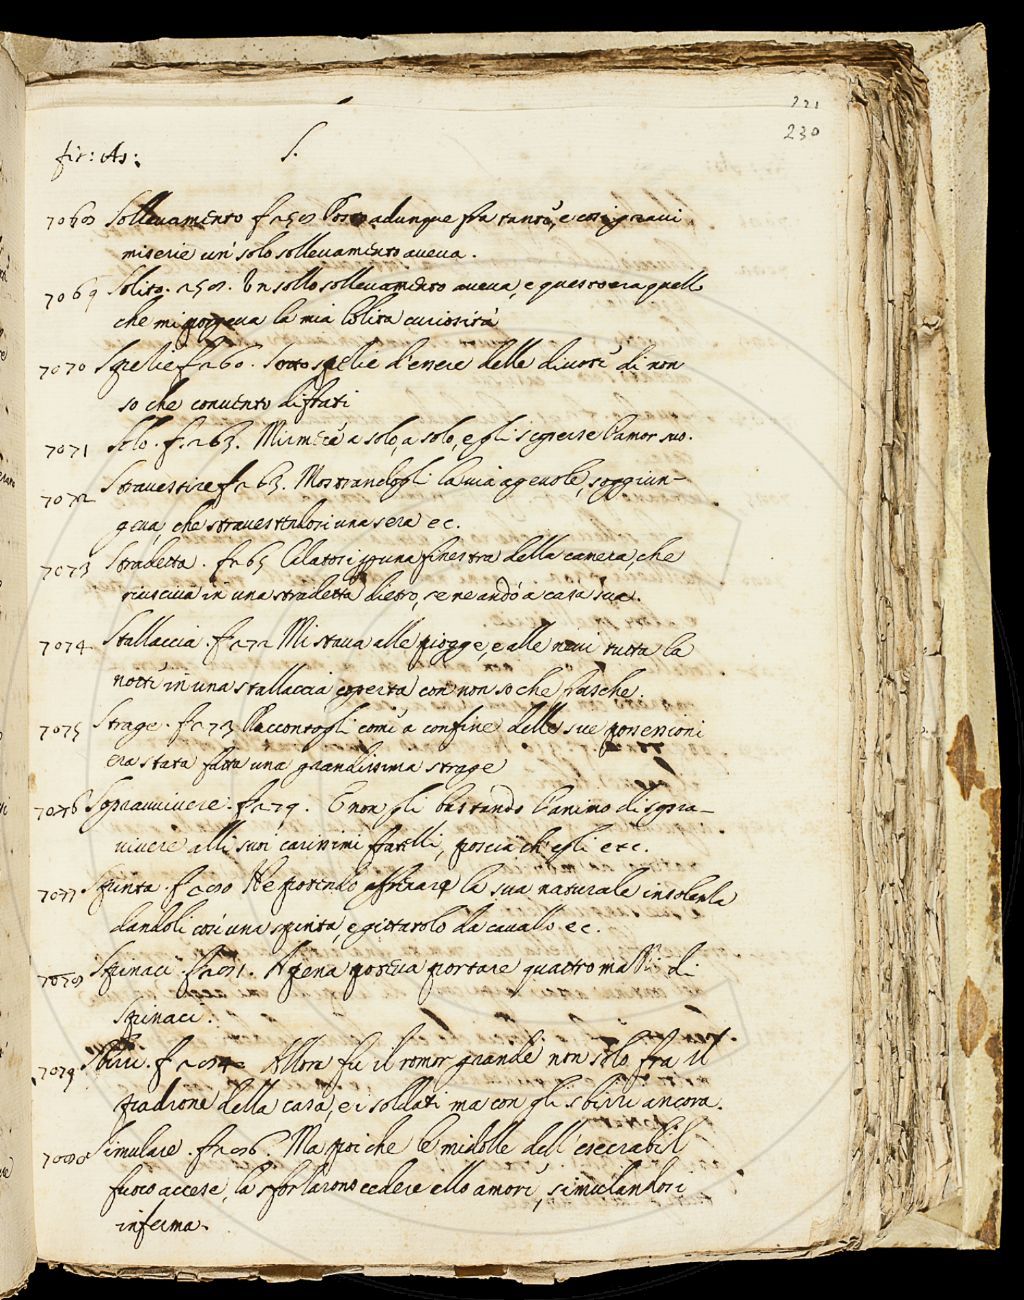 221
230
fir: As: S.
7068 Sollevamento fac 58 Poco adunque fra tante, e così gravi
miserie un' solo sollevamento aveva.
7069 Solito. a 58. Un sollo sollevamento aveva, e questo era quello
che mi porgeva la mia solita curiosità
7070 Spetie fa 60. Sotto spetie d'essere delle divote di non
so che convento di frati
7071 Solo. fa 63. Mi mena a solo, a solo, e gli scoperse l'amor suo.
7072 Stravestire fa 63. Mostrandogli la via agevole, soggiun-
geva, che stravestitolosi una sera ec.
7073 Stradetta. fa 65 Calatosi p una finestra della camera, che
riusciva in una stradetta dietro, se ne andò a casa sua.
7074 Stallaccia. fa 72 Mi stava alle piogge, e alle nevi tutta la
notte in una stallaccia coperta con non so che frasche.
7075 Strage. fa 73 Raccontogli come a confine delle sue possessioni
era stata fatta una grandissima strage
7076 Sopravvivere. fa 79. E non gli bastando l'animo di sopra-
vivere alli suoi carissimi fratelli, poscia ch'egli etc.
7077 Spinta. fa 80 Ne potendo affrenare la sua naturale insolenza
dandoli così una spinta, e gittatolo da cavallo ec.
7078 Spinaci. fa 81. Apena poteva portare quattro mazzi di
Spinaci.
7079 Sbirri. fa 84 Allora fu il romor grande non solo fra il
padrone della casa, e i soldati ma con gli sbirri ancora.
7080 Simulare. fa 86. Ma poi che le midolle dell' esecrabil
fuoco accese, la sforzarono cedere allo amore, simulandosi
inferma.